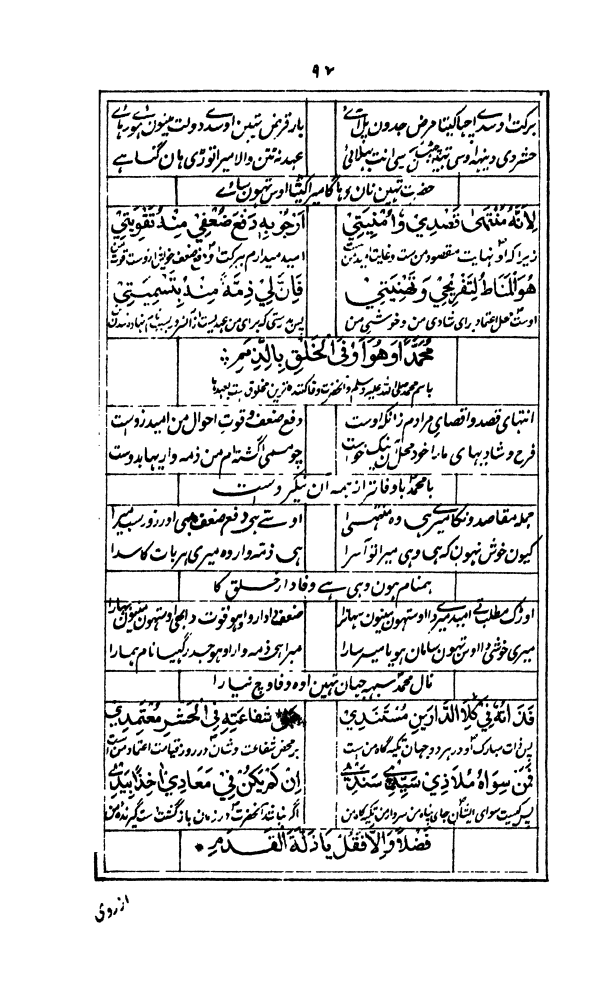 ۹۷
برکت اوسدے اچھا کیتا مرض جدون پل آئے
بار قرض تہین اوسدے دولت مینون ہے ہورہائے
عہد نہ تن والا میرا توڑی ہان گنا ہے
حضرت تہین نان
لِاَنَّهُ مُنْتَهٰى قَصْدِيْ وَاُمْنِيَتِيْ
اَرْجُوْ بِهٖ دَفْعَ ضَعْفِيْ مِنْهُ تَقْوِيَتِيْ
زیرا کہ او نہایت مقصود من ست و غایت
امید میدارم ببرکت او دفع ضعف
هُوَ الْمَنَاطُ لِتَفْرِيْحِيْ وَتَهْنِيَتِيْ
فَاِنَّ لِيْ ذِمَّةً مِنْهُ بِتَسْمِيَتِيْ
اوست محل اعتماد برای شادی من و خوشی من
پس بدرستی کہ برای من عہدیست از
مُحَمَّدًا وَهُوَ اَوْفَى الْخَلْقِ بِالذِّمَمِ
باسم محمد صلی اللہ علیہ وسلم و آنحضرت وفا کنندہ ترین مخلوق ست بعہدہا
انتہای قصد و اقصای مرادم زانکہ اوست
دفع ضعف و قوت احوال من امید زوست
فرح و شادیہای مارا خود محل آن نیک خوست
چو مسمی گشتہ ام من ذمہ واریہا بدوست
با محمد باوفاتر از ہمہ آن نیکروست
جملہ مقاصد ونکا میرے ہی وہ منتہی
اوسے ہی دفع ضعف ہی اور زور سب میرا
کیون خوش نہون کہ ہی وہی میرا تو آسرا
ہی ذمہ دار وہ میری ہر بات کا سدا
ہمنام ہون وہی ہے وفادار خلق کا
میری خوشی دا اوس تہون سامان ہویا میر سارا
میرا ہی ذمہ وار اوہو جد رکھیا نام ہمارا
نال محمد سبہہ جہان تہین اوہ وفا وچ نیارا
قَدْ اِنَّهُ فِيْ كِلَا الدَّارَيْنِ مُسْتَنَدِيْ
شَفَاعَتِهٖ فِي الْحَشْرِ مُعْتَمَدِيْ
پس ذات مبارک او در ہر دو جہان تکیہ گاہ من ست
بر محض شفاعت وشان در روز قیامت اعتماد من
فَمَنْ سِوَاهُ مَلَاذِيْ سَيِّدِيْ سَنَدِيْ
اِنْ لَمْ يَكُنْ فِيْ مَعَادِيْ اٰخِذًا بِيَدِيْ
پس کیست سوای ایشان جای پناہ من سردار من تکیہ گاہ من
اگر نباشد آنحضرت در زمان بازگشت
فَضْلًا وَاِلَّا فَقُلْ يَا زَلَّةَ الْقَدَمِ
از روی